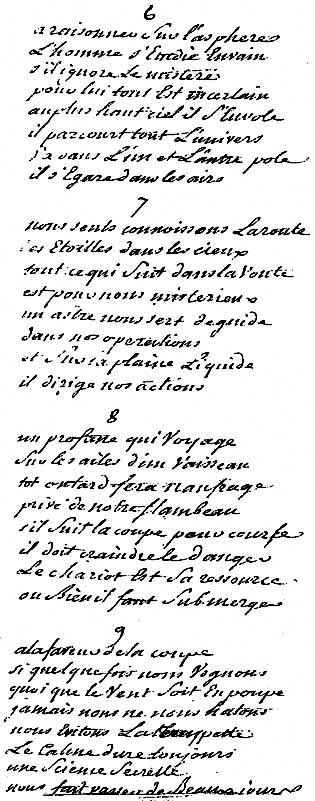 6
a raisonner sur la sphere
L'homme s'Etudie Envain
s'il ignore Le mistere
pour lui tout Est incertain
au plus haut ciel il s'Envole
il parcourt tout L'univers
sans L'un et L'autre pole
il s'Egare dans les airs
7
nous seuls connoissons La route
des Etoilles dans les cieux
tout ce qui suit dans la Voute
est pour nous misterieux
un astre nous sert de guide
dans nos operations
et sur la plaine Liquide
il dirige nos actions
8
un profane qui Voyage
sur les ailes d'un Vaisseau
tot ou tard fera naufrage
privé de notre flambeau
s'il suit la coupe pour course
il doit craindre le danger
Le chariot Est sa ressource
ou Bien il faut submerger
9
a la faveur de la coupe
si quelque fois nous Vognons
quoi que le Vent soit En poupe
jamais nous ne nous hatons
nous Evitons La tempette
Le Calme dure toujours
une Science Secrette
nous fait passer de Beaux jours